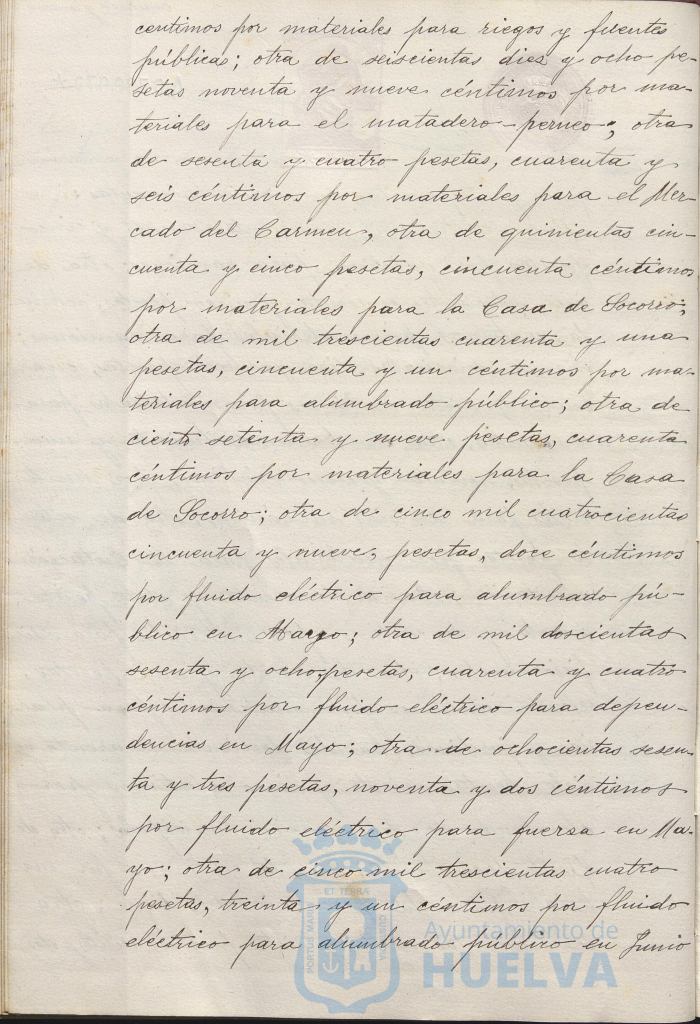 centimos por materiales para riegos y fuentes
públicas; otra de seiscientas diez y ocho pe-
setas noventa y nueve céntimos por ma-
teriales para el matadero-perneo; otra
de sesenta y cuatro pesetas, cuarenta y
seis céntimos por materiales para el Mer-
cado del Carmen, otra de quinientas cin-
cuenta y cinco pesetas, cincuenta céntimos
por materiales para la Casa de Socorro;
otra de mil trescientas cuarenta y una
pesetas, cincuenta y un céntimos por ma-
teriales para alumbrado público; otra de
ciento setenta y nueve pesetas, cuarenta
céntimos por materiales para la Casa
de Socorro; otra de cinco mil cuatrocientas
cincuenta y nueve, pesetas, doce céntimos
por fluido eléctrico para alumbrado pú-
blico en Mayo; otra de mil doscientas
sesenta y ocho pesetas, cuarenta y cuatro
céntimos por fluido eléctrico para depen-
dencias en Mayo; otra de ochocientas sesen-
ta y tres pesetas, noventa y dos céntimos
por fluido eléctrico para fuerza en Ma-
yo; otra de cinco mil trescientas cuatro
pesetas, treinta y un céntimos por fluido
eléctrico para alumbrado público en Junio
Ayuntamiento de
HUELVA